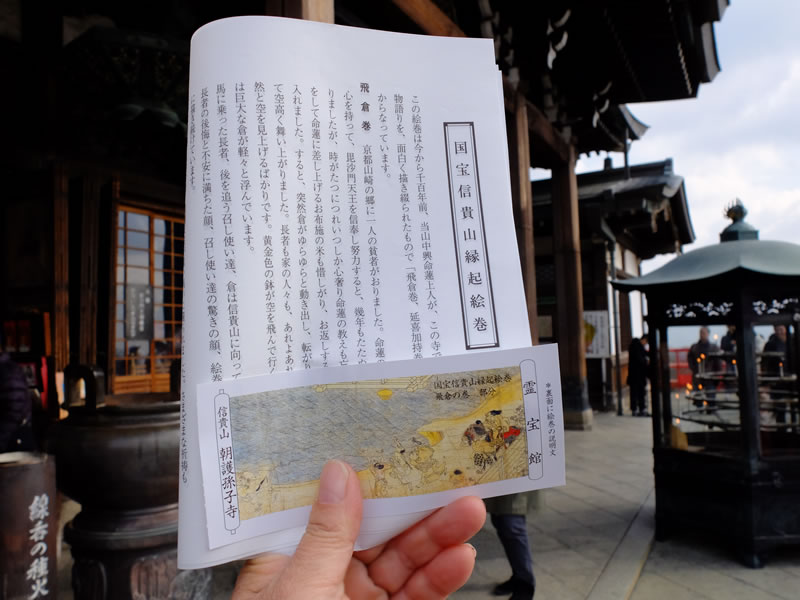 国宝信貴山縁起絵巻
この絵巻は今から千百年前、当山中興命蓮上人が、この寺で
物語りを、面白く描き綴られたもので「飛倉巻、延喜加持巻
からなっています。
飛倉巻　京都山崎の郷に一人の貧者がおりました。命蓮の
心を持って、毘沙門天王を信奉し努力すると、幾年もたため
りましたが、時がたつにつれいつしか心奢り命蓮の教えも忘
をして命蓮に差し上げるお布施の米も惜しがり、お返しする
入れました。すると、突然倉がゆらゆらと動き出し、転がり
て空高く舞い上がりました。長者も家の人々も、あれよあれ
然と空を見上げるばかりです。黄金色の鉢が空を飛んで行く
は巨大な倉が軽々と浮んでいます。
馬に乗った長者、後を追う召し使い達、倉は信貴山に向って
長者の後悔と不安に満ちた顔、召し使い達の驚きの顔、絵巻
に描き続けています。
＊裏面に絵巻の説明文
霊宝館
国宝信貴山縁起絵巻
飛倉の巻　部分
信貴山　朝護孫子寺
線香の種火